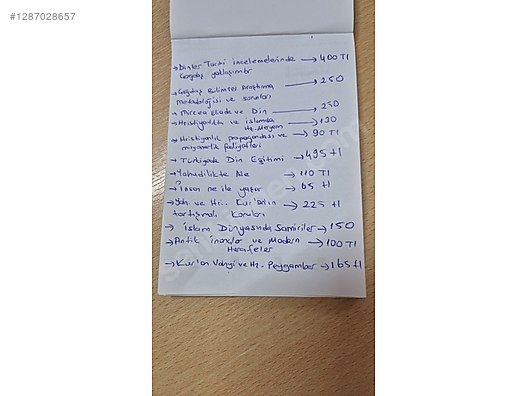 #1287028657
→ Dinler Tarihi incelemelerinde → 400 Tl
Çağdaş yaklaşımlar
→ Çağdaş Bilimsel Araştırma → 250
metadolojisi ve sorunları
→ Mircea Eliade ve Din → 250
→ Hristiyanlıkta ve islamda → 130
Hz. Meryem
→ Hristiyanlık propagandası ve → 90 Tl
misyonerlik faliyetleri
→ Türkiyede Din Eğitimi → 495 tl
→ Yahudilikte Aile → 110 Tl
→ İnsan ne ile yaşar → 65 tl
→ Yah. ve Hris. Kur'an'ın → 225 tl
tartışmalı konuları
→ İslam Dünyasında Samiriler → 150
→ Antik inançlar ve Modern → 100 Tl
Hurafeler
→ Kur'an Vahyi ve Hz. Peygamber → 165 tl
sahibinden.com